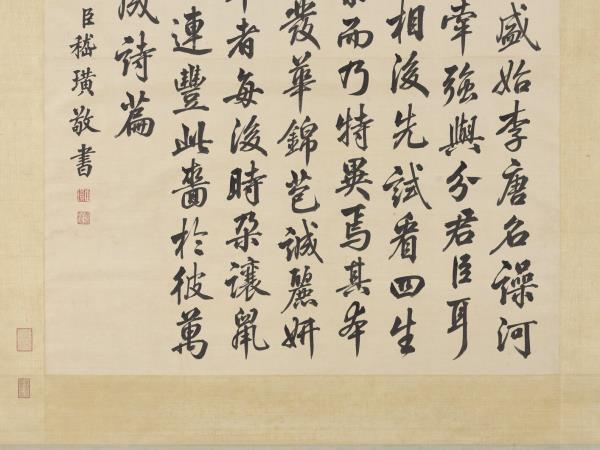 盛始李唐名譟河
牽強與分君臣耳
相後先試看四生
而乃特異焉其本
發華錦苞誠麗妍
者每後時朶讓鼠
連豐此嗇於彼萬
成詩篇
臣嵇璜敬書